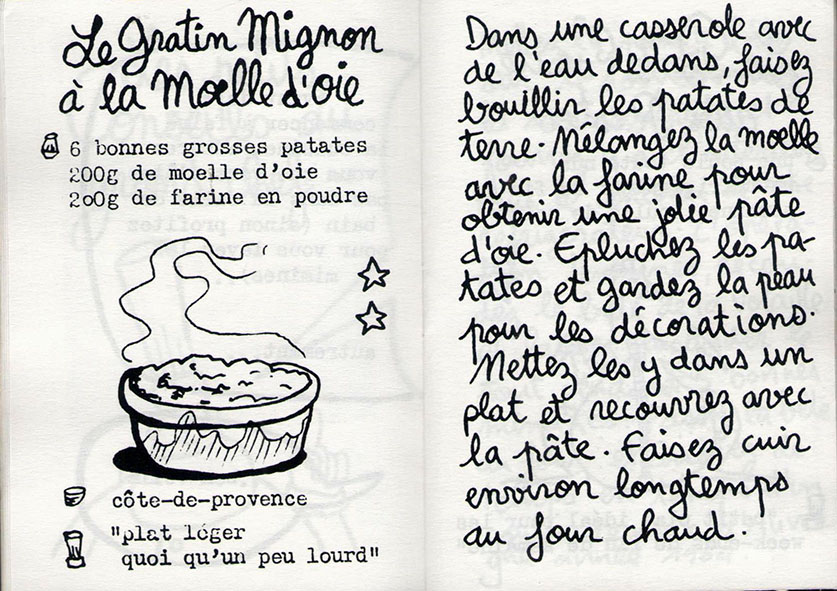 Le Gratin Mignon
à la Moelle d'oie
6 bonnes grosses patates
200g de moelle d'oie
200g de farine en poudre
côte-de-provence
"plat léger
quoi qu'un peu lourd"
Dans une casserole avec
de l'eau dedans, faisez
bouillir les patates de
terre. Mélangez la moelle
avec la farine pour
obtenir une jolie pâte
d'oie. Epluchez les pa-
tates et gardez la peau
pour les décorations.
Mettez les y dans un
plat et recouvrez avec
la pâte. Faisez cuir
environ longtemps
au four chaud.